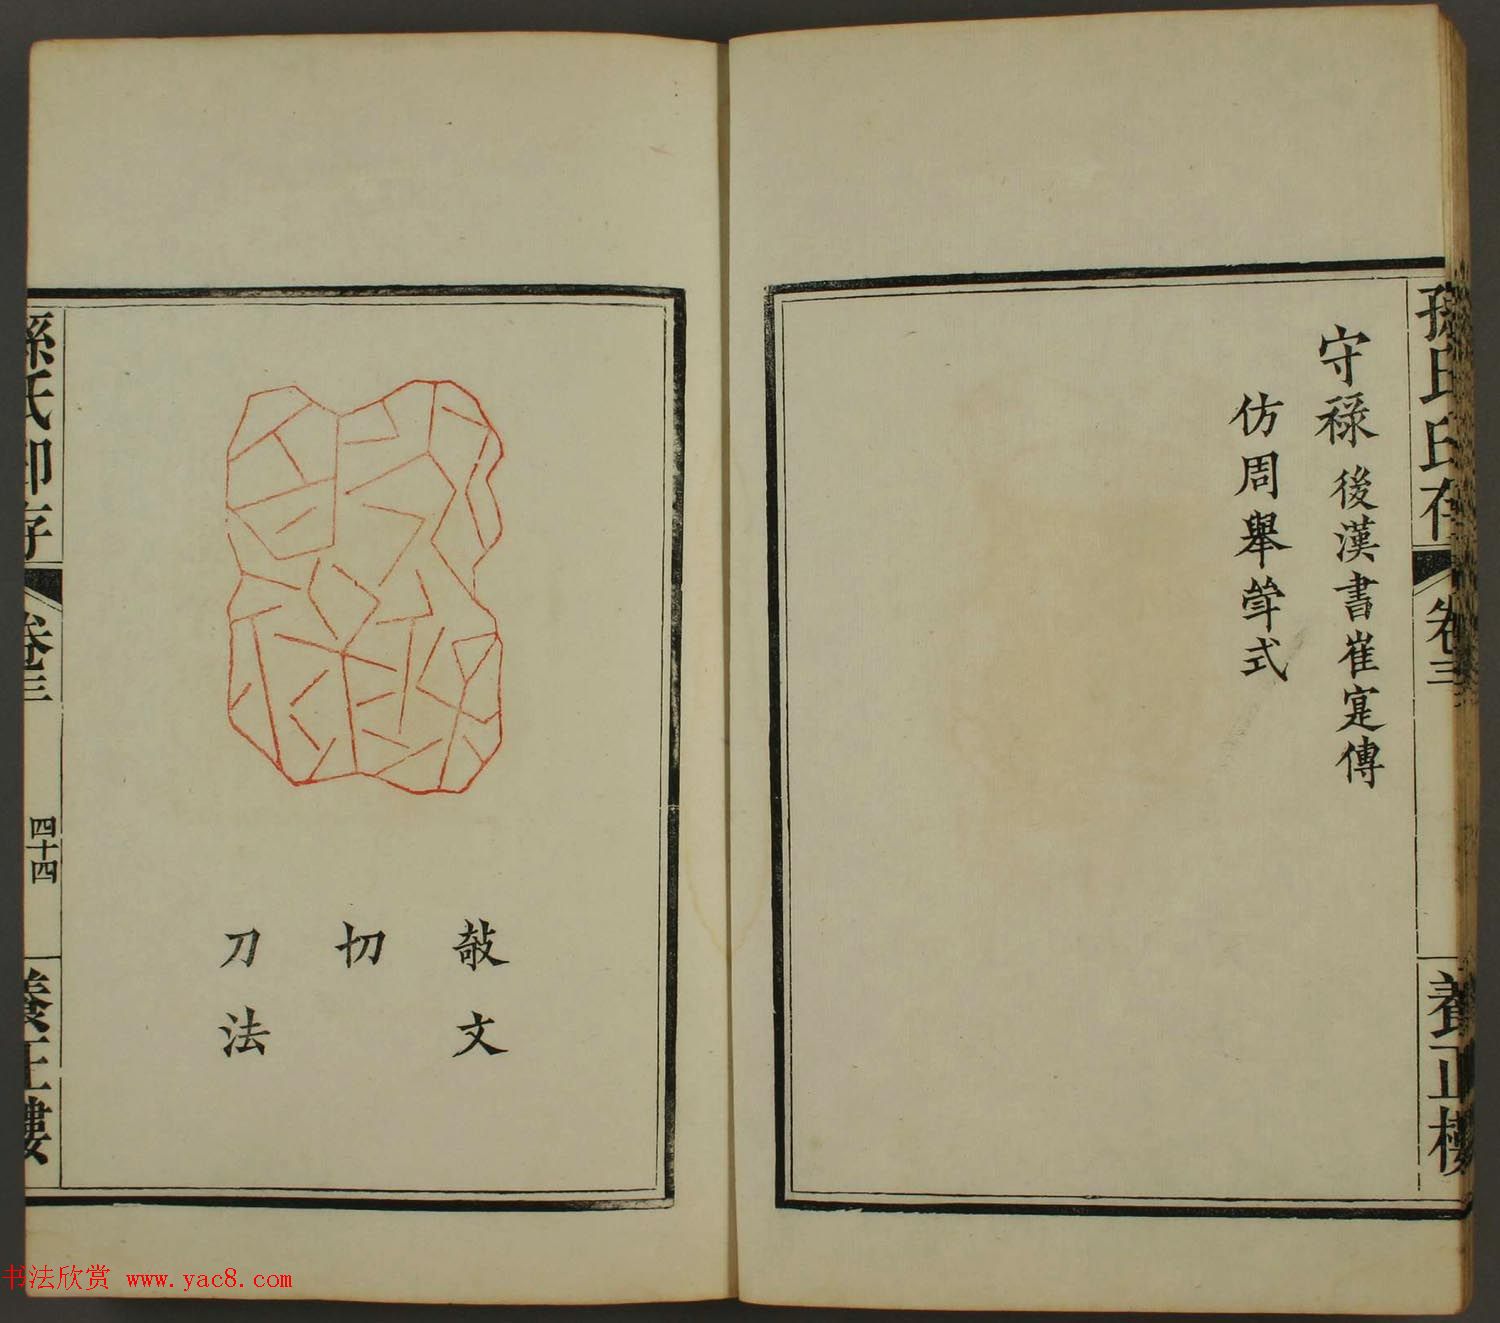 守祿 後漢書崔寔傳
仿周舉斝式
孫氏印存
卷三
養正樓
敧文
切
刀法
孫氏印存
卷三
四十四
養正樓
书法欣赏 www.yac8.com